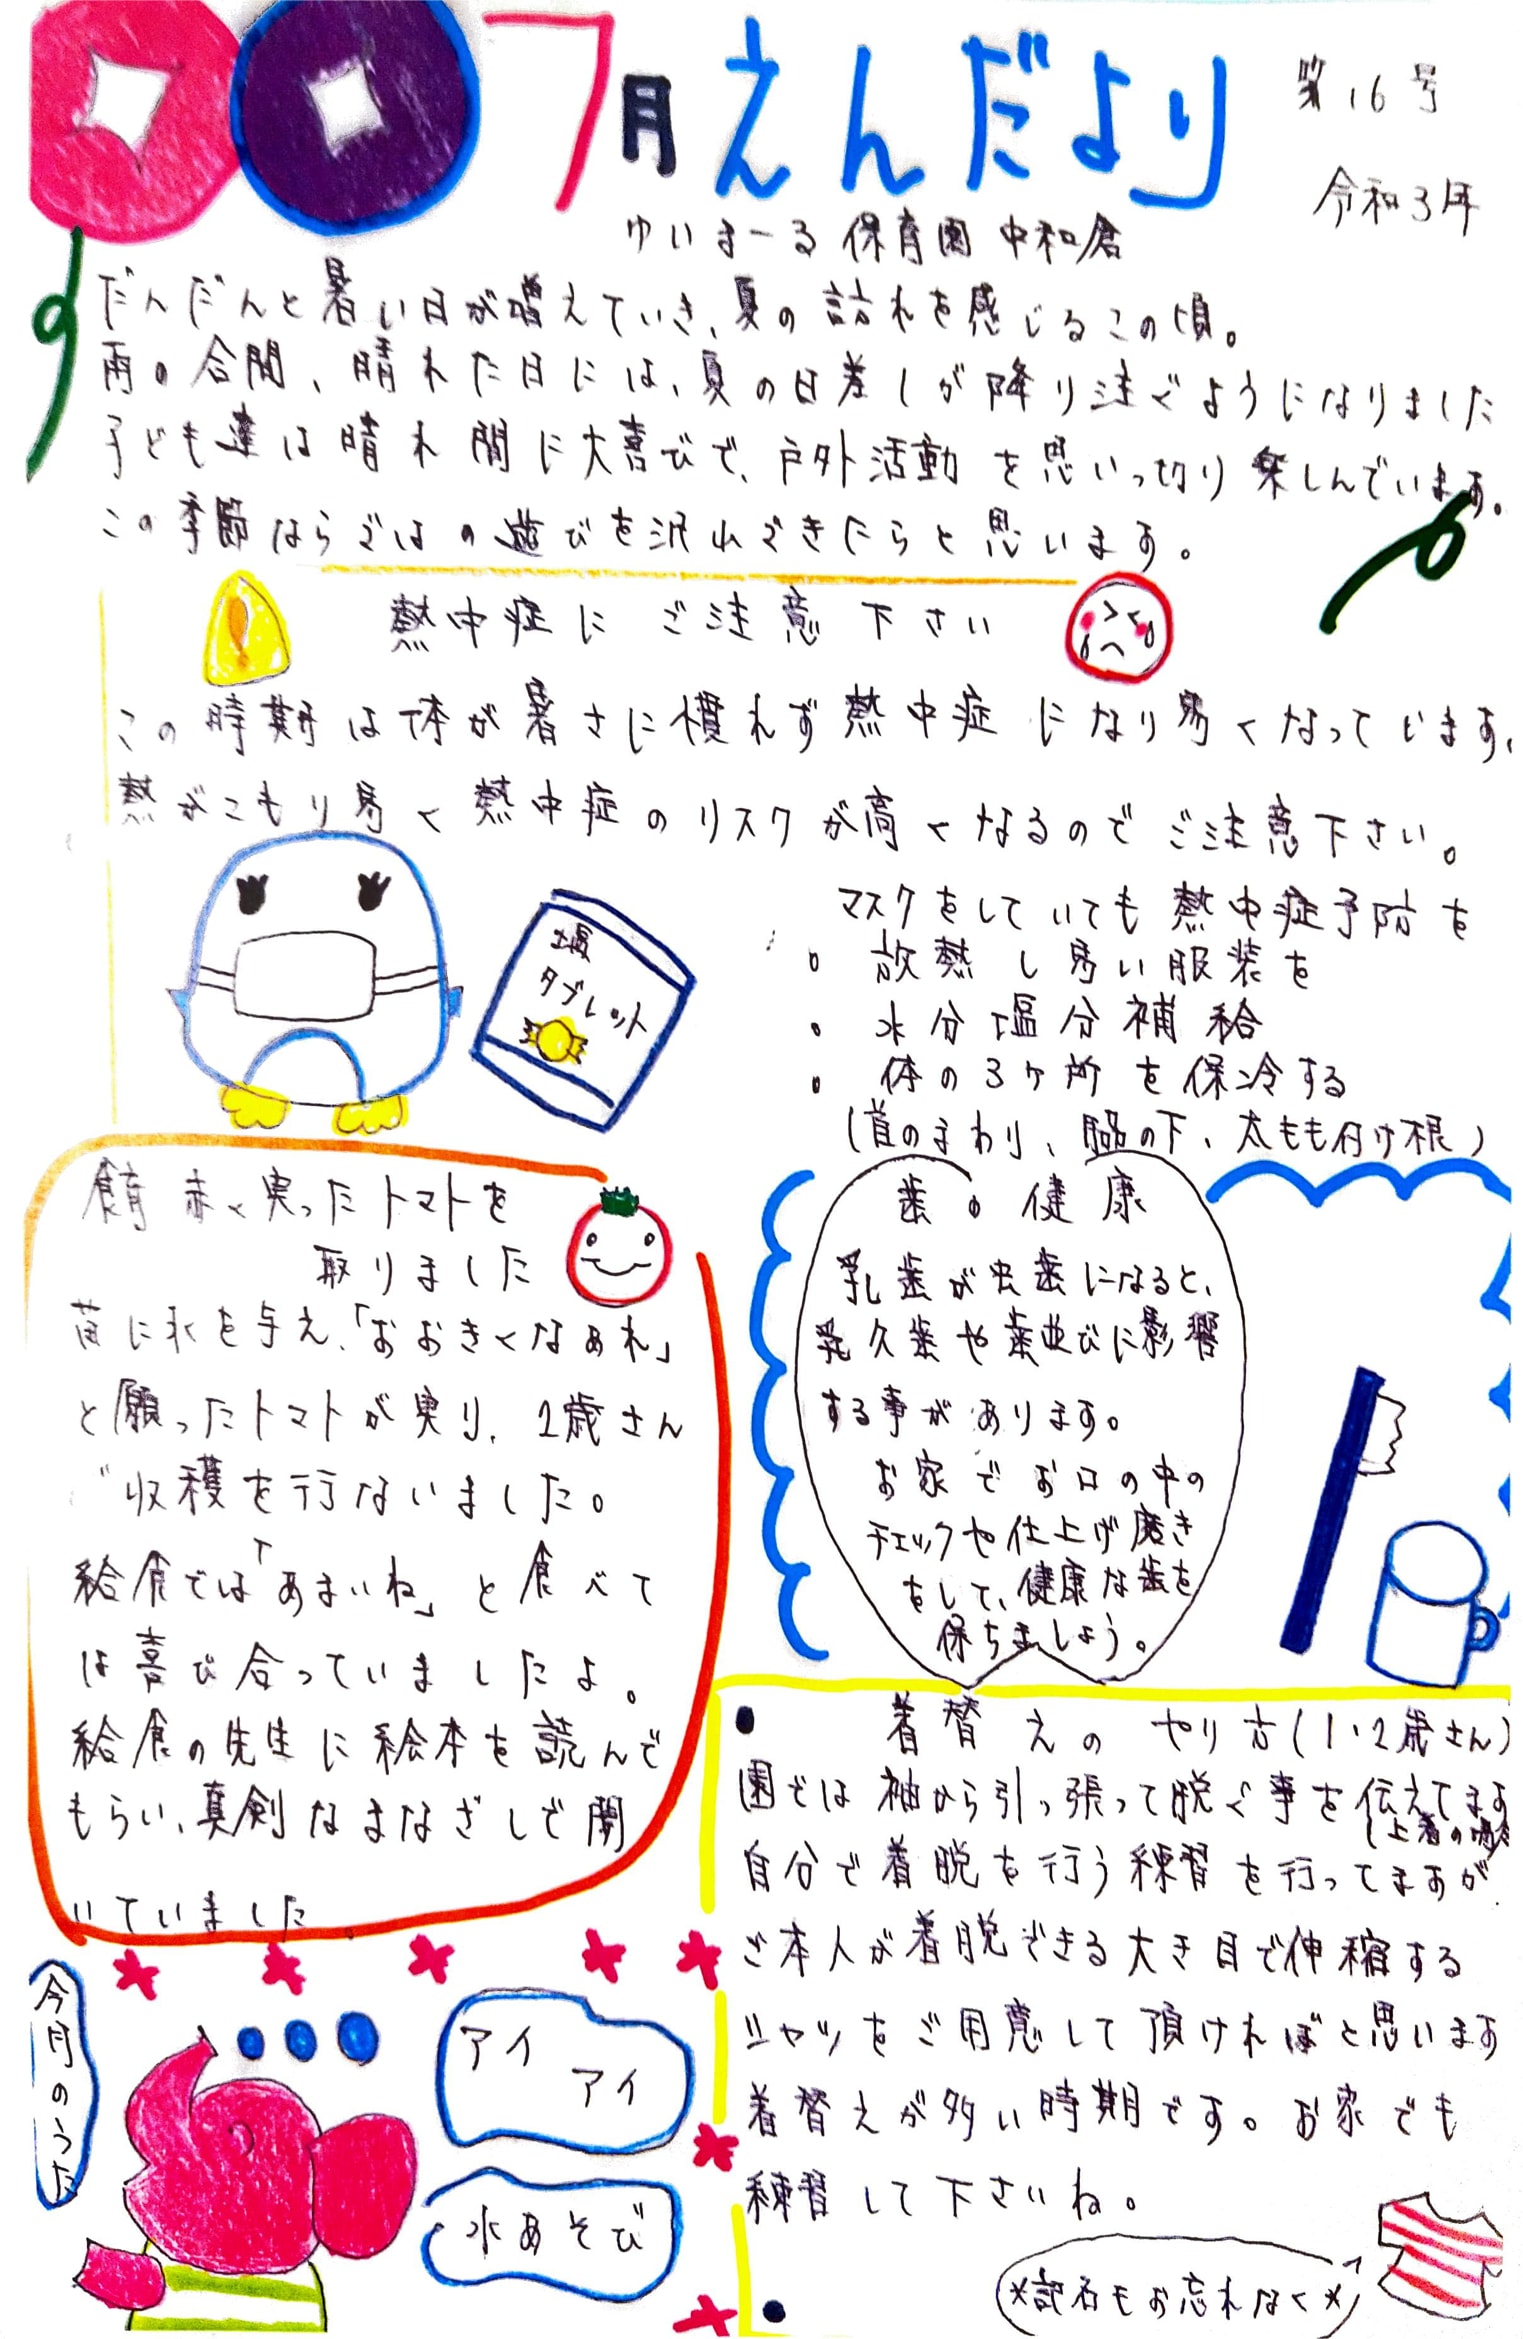 7月 えんだより
第16号
令和3年
ゆいまーる保育園 中和倉
だんだんと暑い日が増えていき、夏の訪れを感じるこの頃。
雨の合間、晴れた日には、夏の日差しが降り注ぐようになりました
子ども達は晴れ間に大喜びで、戸外活動を思いっ切り楽しんでいます。
この季節ならではの遊びを沢山できたらと思います。
熱中症にご注意下さい
この時期は体が暑さに慣れず熱中症になり易くなっています。
熱がこもり易く熱中症のリスクが高くなるのでご注意下さい。
塩
タブレット
マスクをしていても熱中症予防を
。放熱し易い服装を
。水分塩分補給
。体の3ヶ所を保冷する
(首のまわり、脇の下、太もも付け根)
食育 赤く実ったトマトを
取りました
苗に水を与え、「おおきくなあれ」
と願ったトマトが実り、2歳さん
で収穫を行ないました。
給食では「あまいね」と食べて
は喜び合っていましたよ。
給食の先生に絵本を読んで
もらい、真剣なまなざしで聞
いていました。
歯の健康
乳歯が虫歯になると、
乳久歯や歯並びに影響
する事があります。
お家でお口の中の
チェックや仕上げ磨き
をして、健康な歯を
保ちましょう。
● 着替えのやり方(1・2歳さん)
園では袖から引っ張って脱ぐ事を伝えてます
(上着の
自分で着脱を行う練習を行ってますが、
ご本人が着脱できる大き目で伸縮する
シャツをご用意して頂ければと思います
着替えが多い時期です。お家でも
練習して下さいね。
*記名もお忘れなく*
今月のうた
アイ
アイ
水あそび